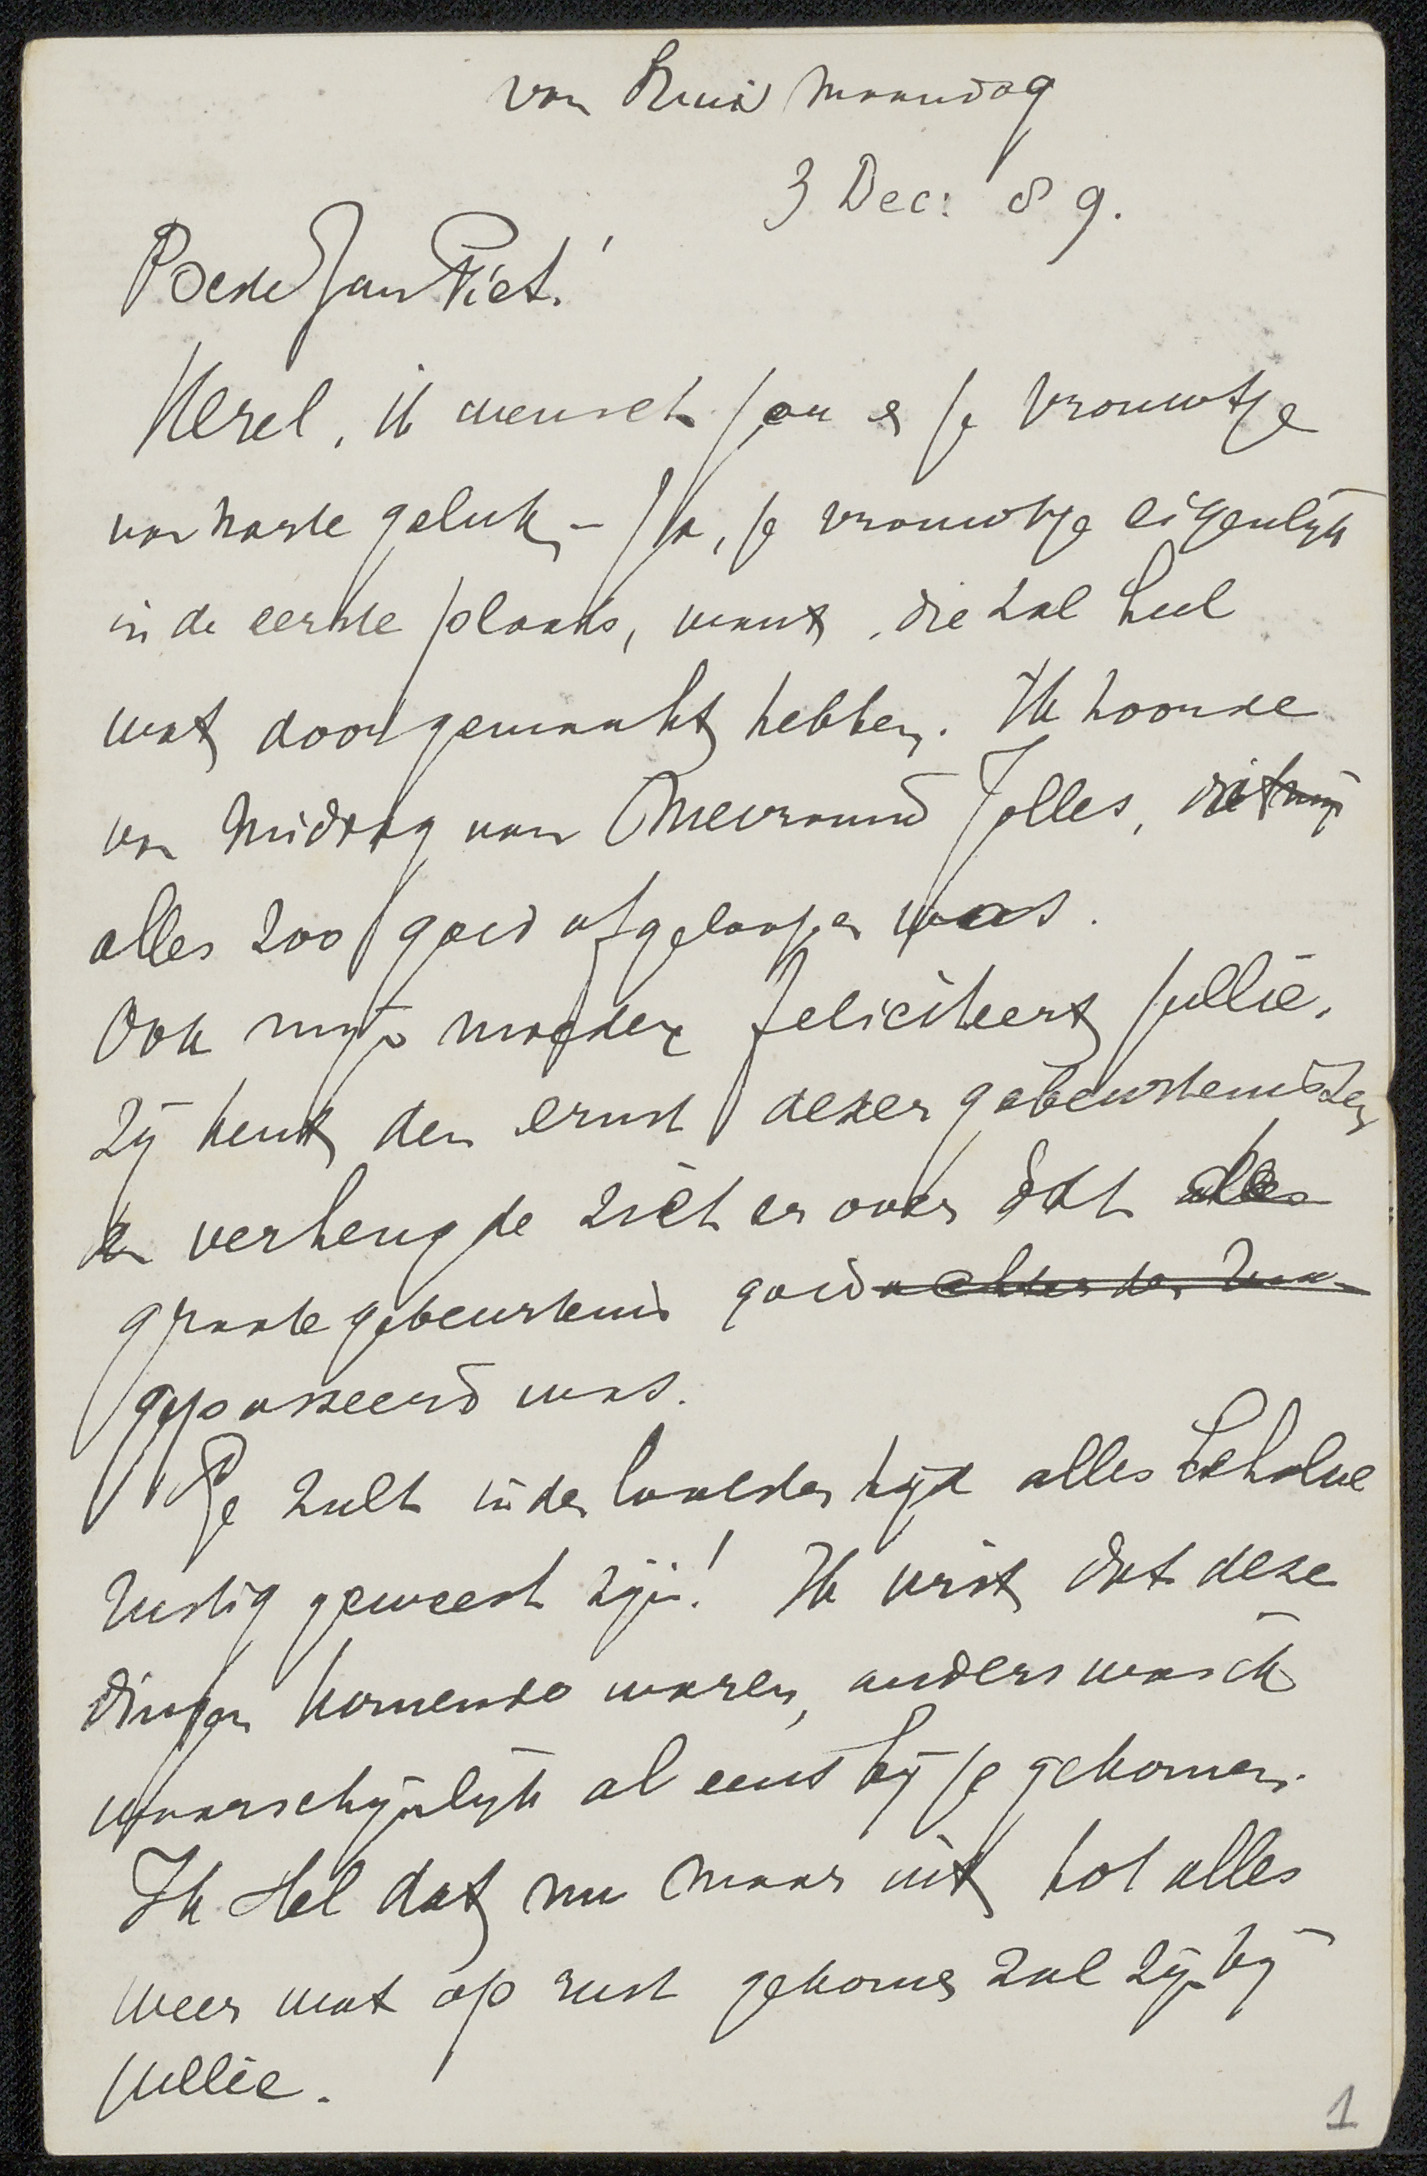 van Huis Maandag
3 Dec: 89.
Beste Jan Piet!
Kerel, ik wensch jou en je vrouwtje
van harte geluk, – Ja, je vrouwtje eigenlijk
in de eerste plaats, want, die zal heel
wat doorgemaakt hebben. Ik hoorde
van middag van Mevrouw Jolles, dat
alles zoo goed afgeloopen was.
Ook mijn moeder feliciteert jullie,
zij kent den ernst dezer gebeurtenissen
en verheugde zich er over dat alles
groote gebeurtenis goed achter den
gepasseerd was.
Je zult in den laatsten tijd alles behalve
rustig geweest zijn! Ik wist dat deze
dingen komende waren, anders was ik
waarschijnlijk al eens bij je gekomen.
Ik stel dat nu maar uit tot alles
weer wat op rust gekomen zal zijn bij
jullie.
1